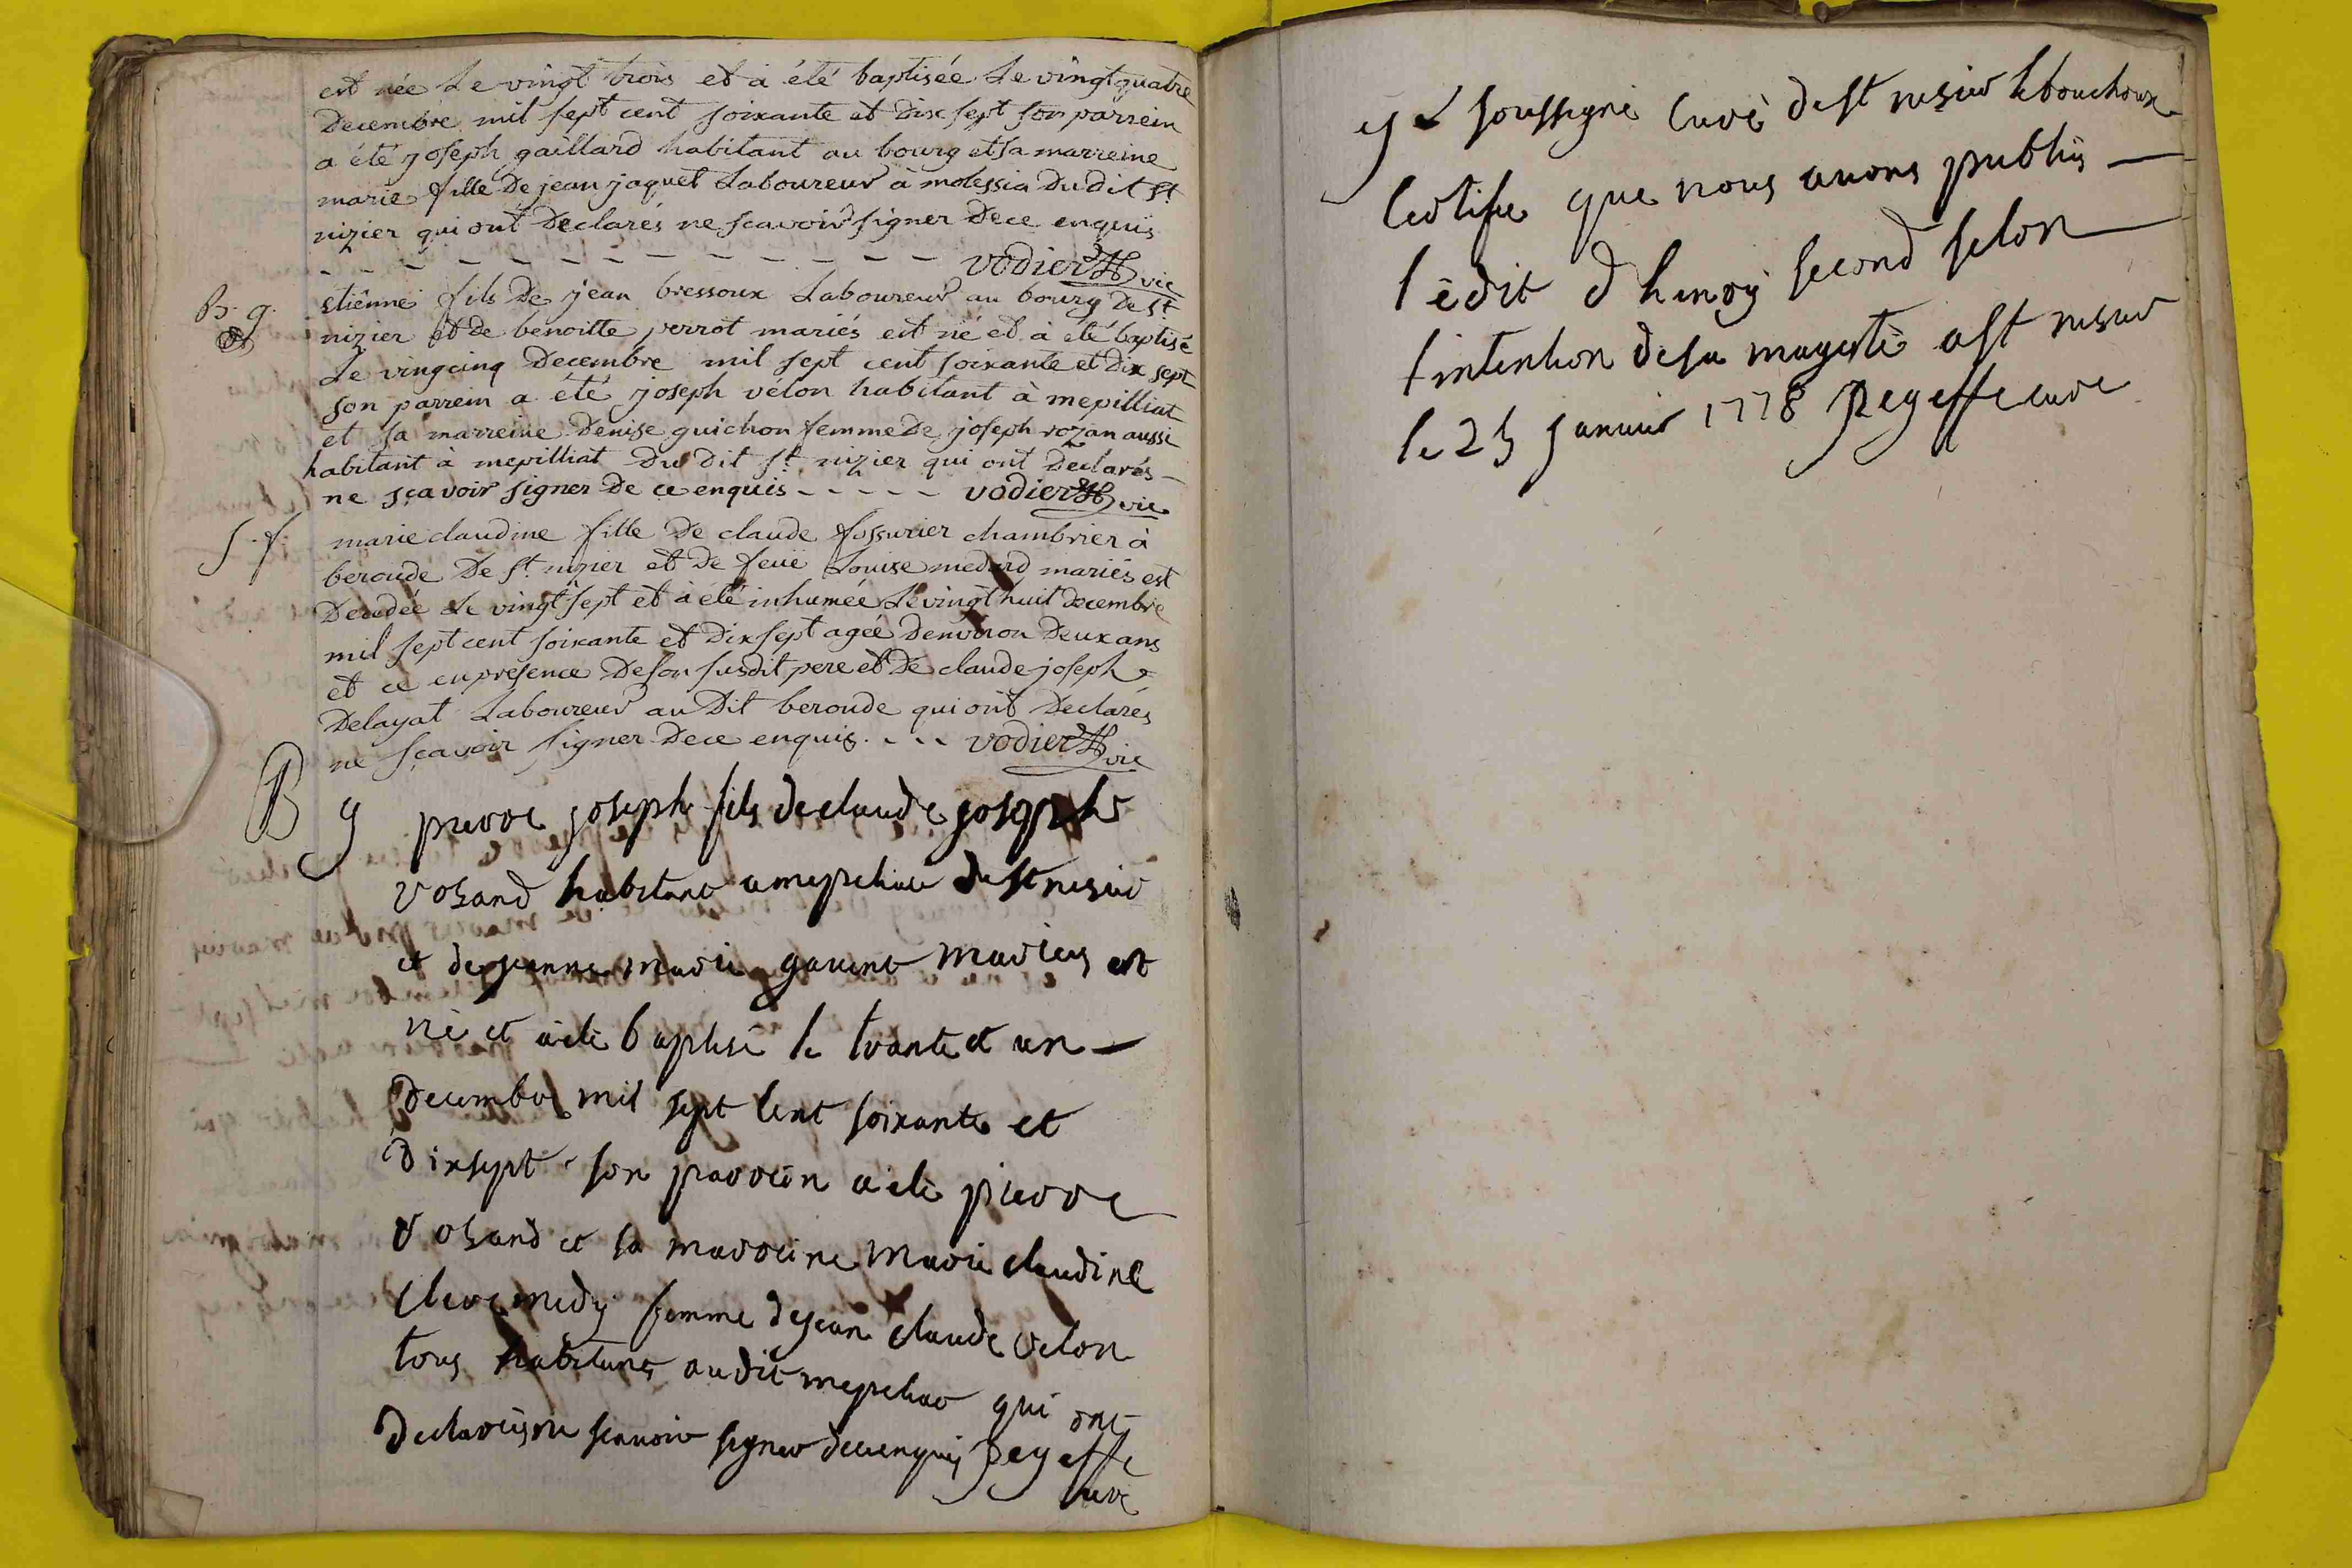 est née Le vingt trois et à été baptisée Le vingt quatre
Decembre mil sept cent soixante et Dix sept son parrein
a été joseph gaillard habitant au bourg et sa marreine
marie fille De jean jaquet Laboureur à molessia Du dit St
nizier qui ont Declarés ne scavoir signer De ce enquis
vodier vic
B. g.
etiênne fils De jean bressoux Laboureur au bourg De St
nizier et de benoitte perrot mariés est né et à été baptisé
Le vingcinq Decembre mil sept cent soixante et Dix sept
son parrein a été joseph vélon habitant à mepilliat
et sa marreine Denise guichon femme De joseph rozan aussi
habitant à mepilliat Du Dit St nizier qui ont Declarés
ne sçavoir signer De ce enquis vodier vic
S. f.
marie claudine fille De claude fossurier chambrier à
beroude De St nizier et De feuë Louise medard mariés est
Decedée Le vingt sept et à été inhumée Le vingt huit decembre
mil sept cent soixante et Dix sept agée Denviron Deux ans
et ce en presence De son susdit pere et De claude joseph
Delayat Laboureur au Dit beroude qui ont Declarés
ne sçavoir signer De ce enquis vodier vic
B g
pierre joseph fils de claude joseph
habitant a mepeliat de st nesier
et de jeanne marie gavent maries est
né et a eté baptisé le trante et un
decembre mil sept cent soixante et
dix sept son parrein a eté pierre
et sa marreine marie claudine
femme de jean claude velon
tous habitans au dit mepeliat qui ont
declareis ne scavoir signer de ce enquis
curé
je soussigné curé de st nesier le bouchoux
certifie que nous avons publiés
l'édit d henry second selon
l intention de sa magesté a st nesier
le 25 janvier 1778 curé